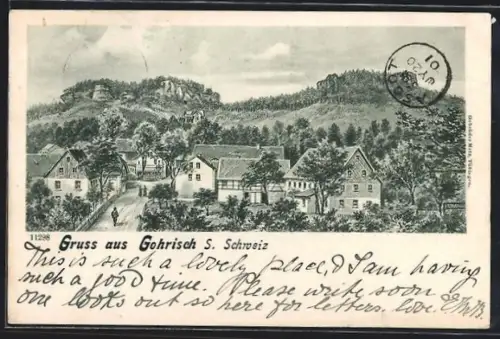 11298 Gruss aus Gohrisch S. Schweiz
This is such a lovely place, & I am having
such a good time. Please write soon
one looks out so here for letters. love.